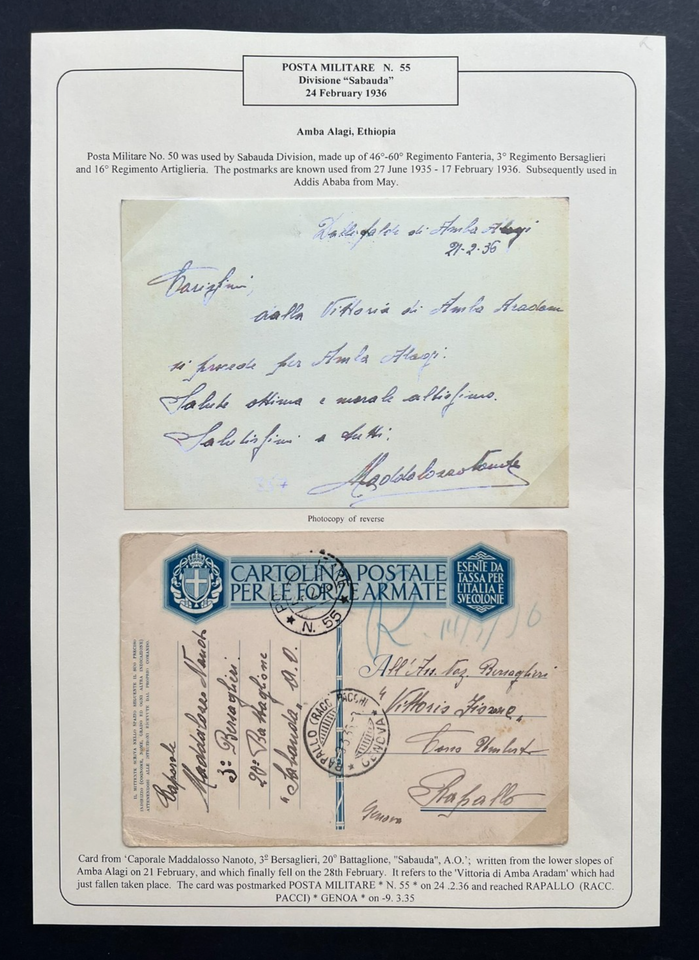 POSTA MILITARE N. 55
Divisione "Sabauda"
24 February 1936
Amba Alagi, Ethiopia
Posta Militare No. 50 was used by Sabauda Division, made up of 46°-60° Regimento Fanteria, 3° Regimento Bersaglieri
and 16° Regimento Artiglieria. The postmarks are known used from 27 June 1935 - 17 February 1936. Subsequently used in
Addis Ababa from May.
Dalle falde di Amba Alagi
21-2-36
Carissimi,
dalla Vittoria di Amba Aradam
si procede per Amba Alagi.
Salute ottima e morale altissimo.
Salutissimi a tutti.
Photocopy of reverse
CARTOLINA POSTALE
PER LE FORZE ARMATE
ESENTE DA
TASSA PER
L'ITALIA E
SUE COLONIE
N. 55
Caporale
Maddalosso Nanot
3° Bersaglieri
20° Battaglione
"Sabauda" A.O.
RAPALLO (RACC. PACCHI)
GENOVA
All'Ass. Naz. Bersaglieri
"Vittorio
Corso Umberto
Rapallo
Genova
Card from 'Caporale Maddalosso Nanoto, 3º Bersaglieri, 20° Battaglione, "Sabauda", A.O.'; written from the lower slopes of
Amba Alagi on 21 February, and which finally fell on the 28th February. It refers to the 'Vittoria di Amba Aradam' which had
just fallen taken place. The card was postmarked POSTA MILITARE * N. 55 * on 24 .2.36 and reached RAPALLO (RACC.
PACCI) * GENOA * on -9. 3.35